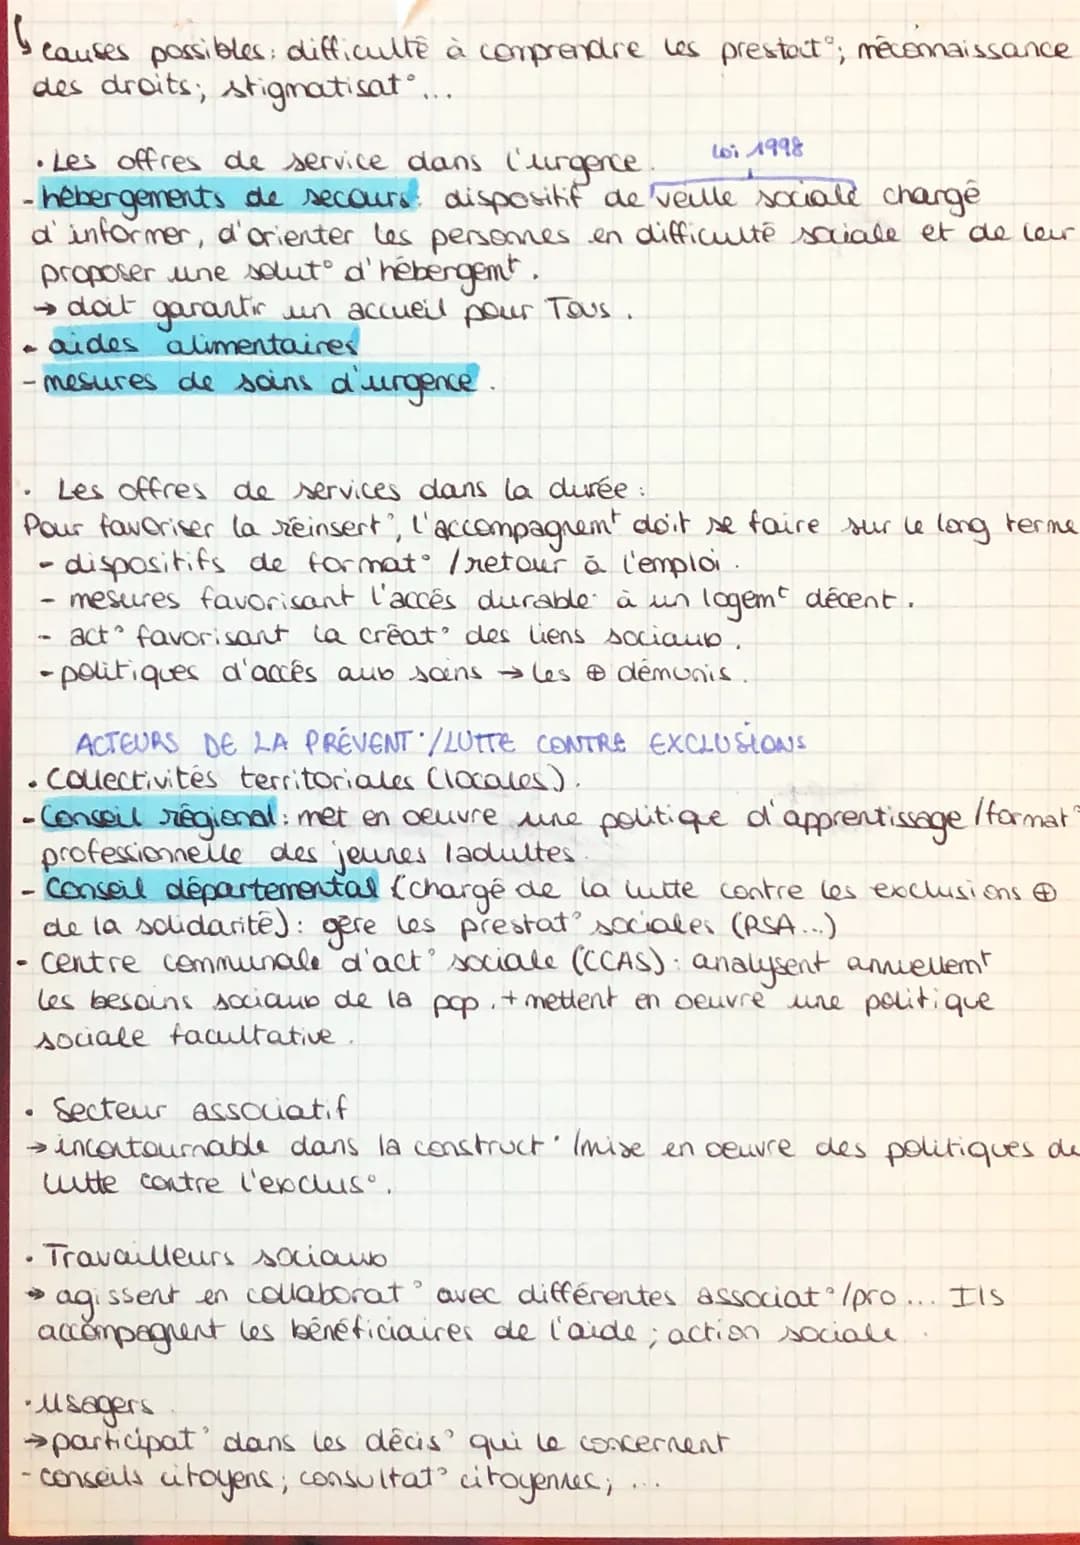 ↳ causes possibles: difficulté à comprendre les prestat°; méconnaissance
des droits; stigmatisat°...
• Les offres de service dans l'urgence.
Loi 1998
- hébergements de secours: dispositif de veille sociale chargé
d'informer, d'orienter les personnes en difficulté sociale et de leur
proposer une solut° d'hébergemt.
→ doit garantir un accueil pour Tous.
- aides alimentaires
- mesures de soins d'urgence.
• Les offres de services dans la durée:
Pour favoriser la réinsert°, l'accompagnemt doit se faire sur le long terme
- dispositifs de format° / retour à l'emploi.
- mesures favorisant l'accés durable à un logemt décent.
- act° favorisant la créat° des liens sociaux.
- politiques d'accés aux soins → les ⊕ démunis.
ACTEURS DE LA PRÉVENT°/LUTTE CONTRE EXCLUSIONS
• Collectivités territoriales (locales).
- Conseil régional: met en oeuvre une politique d'apprentissage / format°
professionnelle des jeunes / adultes.
- Conseil départemental (chargé de la lutte contre les exclusions ⊕
de la solidarité): gère les prestat° sociales (RSA...)
- Centre communale d'act° sociale (CCAS): analysent annuellemt
les besoins sociaux de la pop. + mettent en oeuvre une politique
sociale facultative.
• Secteur associatif
→ incontournable dans la construct° / mise en oeuvre des politiques de
lutte contre l'exclus°.
• Travailleurs sociaux
→ agissent en collaborat° avec différentes associat°/pro... Ils
accompagnent les bénéficiaires de l'aide; action sociale.
• Usagers
→ participat° dans les décis° qui le concernent
- conseils citoyens; consultat° citoyennes; ...